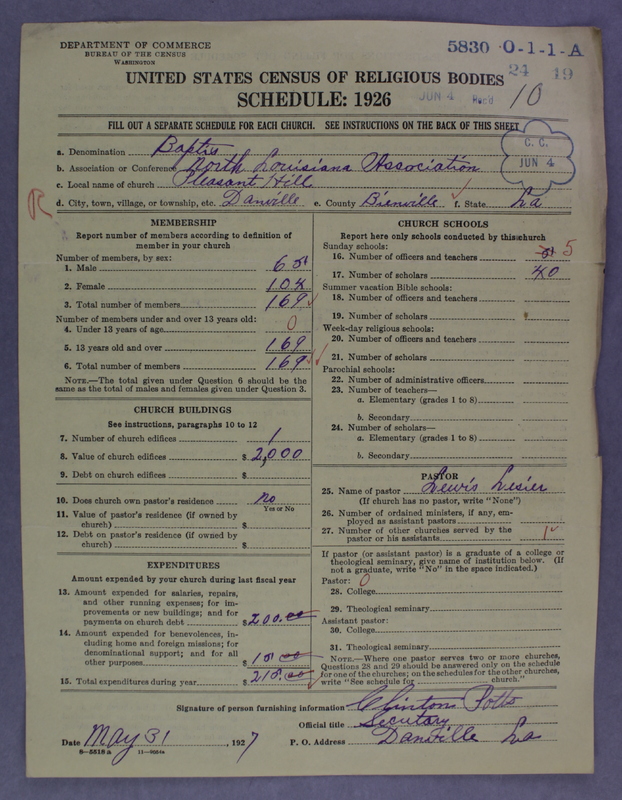 DEPARTMENT OF COMMERCE
BUREAU OF THE CENSUS
WASHINGTON
5830 0-1-1-A
24 19
UNITED STATES CENSUS OF RELIGIOUS BODIES
SCHEDULE: 1926
JUN 4 Rec'd 10
FILL OUT A SEPARATE SCHEDULE FOR EACH CHURCH. SEE INSTRUCTIONS ON THE BACK OF THIS SHEET
C. C.
JUN 4
a. Denomination Baptis
b. Association or Conference North Louisiana Association
c. Local name of church Pleasant Hill
R
d. City, town, village, or township, etc. Danville e. County Bienville f. State La
MEMBERSHIP
Report number of members according to definition of
member in your church
Number of members, by sex:
1. Male 65
2. Female 104
3. Total number of members 169
Number of members under and over 13 years old:
4. Under 13 years of age 0
5. 13 years old and over 169
6. Total number of members 169
NOTE.—The total given under Question 6 should be
same as the total of males and females given under Question 3.
CHURCH BUILDINGS
See instructions, paragraphs 10 to 12
7. Number of church edifices 1
8. Value of church edifices $ 2,000
9. Debt on church edifices $
10. Does church own pastor's residence No
Yes or No
11. Value of pastor's residence (if owned by
church) $
12. Debt on pastor's residence (if owned by
church) $
EXPENDITURES
Amount expended by your church during last fiscal year
13. Amount expended for salaries, repairs,
and other running expenses; for im-
provements or new buildings; and for
payments on church debt $ 200.00
14. Amount expended for benevolences, in-
cluding home and foreign missions; for
denominational support; and for all
other purposes $ 18.00
15. Total expenditures during year $ 218.00
CHURCH SCHOOLS
Report here only schools conducted by this church
Sunday schools:
16. Number of officers and teachers 5
17. Number of scholars 40
Summer vacation Bible schools:
18. Number of officers and teachers
19. Number of scholars
Week-day religious schools:
20. Number of officers and teachers
21. Number of scholars
Parochial schools:
22. Number of administrative officers
23. Number of teachers—
a. Elementary (grades 1 to 8)
b. Secondary
24. Number of scholars—
a. Elementary (grades 1 to 8)
b. Secondary
PASTOR
25. Name of pastor Lewis Lesier
(If church has no pastor, write "None")
26. Number of ordained ministers, if any, em-
ployed as assistant pastors
27. Number of other churches served by the
pastor or his assistants 1
If pastor (or assistant pastor) is a graduate of a college or
theological seminary, give name of institution below. (If
not a graduate, write "No" in the space indicated.)
Pastor: 0
28. College
29. Theological seminary
Assistant pastor:
30. College
31. Theological seminary
NOTE.—Where one pastor serves two or more churches,
Questions 28 and 29 should be answered only on the schedule
for one of the churches; on the schedules for the other churches,
write "See schedule for church."
Signature of person furnishing information Clinton Potts
Official title Secutary
Date May 31, 1927 P. O. Address Danville La
8—5518 a